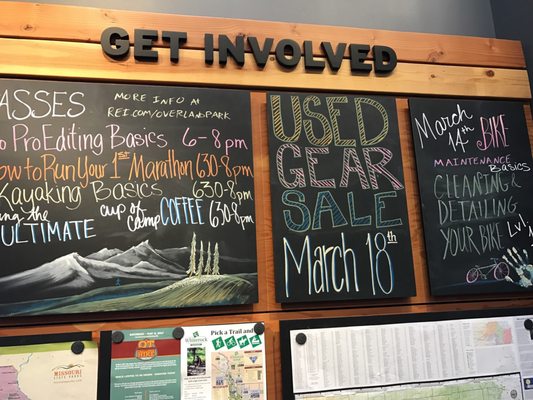 GET INVOLVED
ASSES
MORE INFO AT
REI.COM/OVERLANDPARK
o PRO Editing Basics 6-8pm
ow to Run Your 1st Marathon 630-8pm
Kayaking Basics 630-8pm
ing the
ULTIMATE cup of camp COFFEE 630-8pm
USED
GEAR
SALE
March 18th
March
14th BIKE
MAINTENANCE Basics
CLEANING &
DETAILING
YOUR BIKE Lvl 1
Pick a Trail
MISSOURI
STATE PARKS